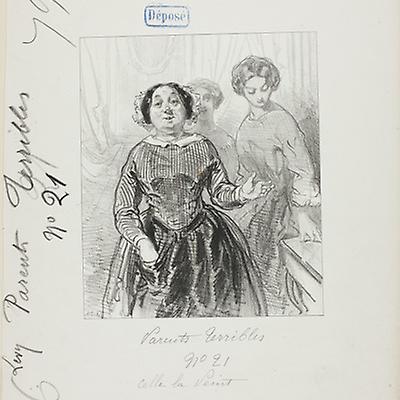 Déposé
79
Parents Terribles
no 21
Parents Terribles
No 21
celle la